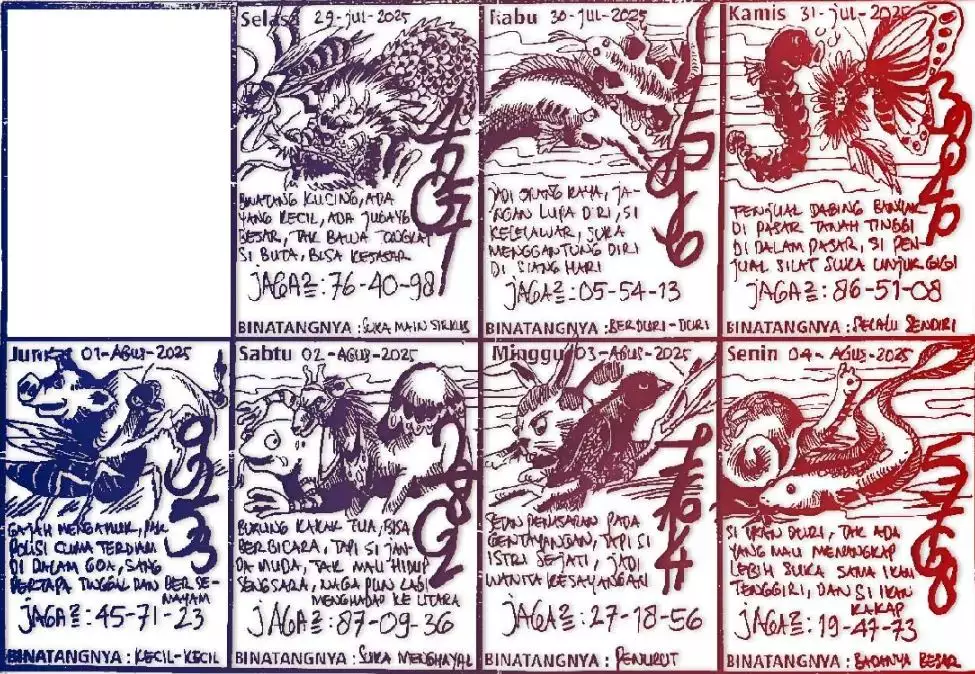 Selasa 29-JUL-2025
BINATANG KUCING, ADA
YANG KECIL, ADA JUGA YG
BESAR, TAK BAWA TONGKAT
SI BUTA, BISA KESASAR
JAGA2 : 76-40-98
BINATANGNYA : SUKA MAIN SIRKUS
Rabu 30-JUL-2025
JADI ORANG KAYA, JA-
NGAN LUPA DIRI, SI
KELELAWAR, SUKA
MENGGANTUNG DIRI
DI SIANG HARI
JAGA2 : 05-54-13
BINATANGNYA : BERDURI-DURI
Kamis 31-JUL-2025
PENJUAL DAGING BANYAK
DI PASAR TANAH TINGGI
DI DALAM PASAR, SI PEN-
JUAL SILAT SUKA UNJUK GIGI
JAGA2 : 86-51-08
BINATANGNYA : SELALU SENDIRI
Jumat 01-AGUS-2025
9
2
3
GAJAH MENGAMUK, PAK
POLISI CUMA TERDIAM
DI DALAM GOA, SANG
PERTAPA TINGGAL DAN BERSE-
MAYAM
JAGA2 : 45-71-23
BINATANGNYA : KECIL-KECIL
Sabtu 02-AGUS-2025
BURUNG KAKAK TUA, BISA
BERBICARA, TAPI SI JAN-
DA MUDA, TAK MAU HIDUP
SENGSARA, NAGA PUN LAGI
MENGHADAP KE UTARA
JAGA2 : 87-09-36
BINATANGNYA : SUKA MENGHAYAL
Minggu 03-AGUS-2025
SETAN PENASARAN PADA
GENTAYANGAN, TAPI SI
ISTRI SEJATI, JADI
WANITA KESAYANGAN
JAGA2 : 27-18-56
BINATANGNYA : PENURUT
Senin 04-AGUS-2025
SI IKAN DURI, TAK ADA
YANG MAU MENANGKAP
LEBIH SUKA SAMA IKAN
TENGGIRI, DAN SI IKAN
KAKAP
JAGA2 : 19-47-73
BINATANGNYA : BADANNYA BESAR